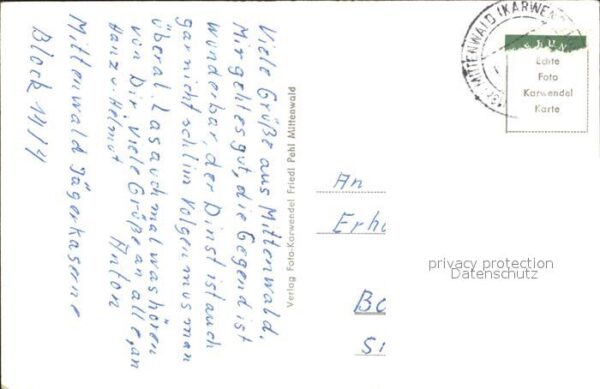 Viele Grüße aus Mittenwald.
Mir geht es gut, die Gegend ist
wunderbar, der Dinst ist auch
gar nicht schlim Volgen mus man
überal. Las auch mal was hören
von Dir. Viele Grüße an alle, an
Hanz u. Helmut Anton
Mittenwald Jägerkaserne
Block 14/4
Verlag Foto-Karwendel Friedl Pohl Mittenwald
MITTENWALD (KARWENDEL
Echte
Foto
Karwendel
Karte
An
Erh
privacy protection
Datenschutz